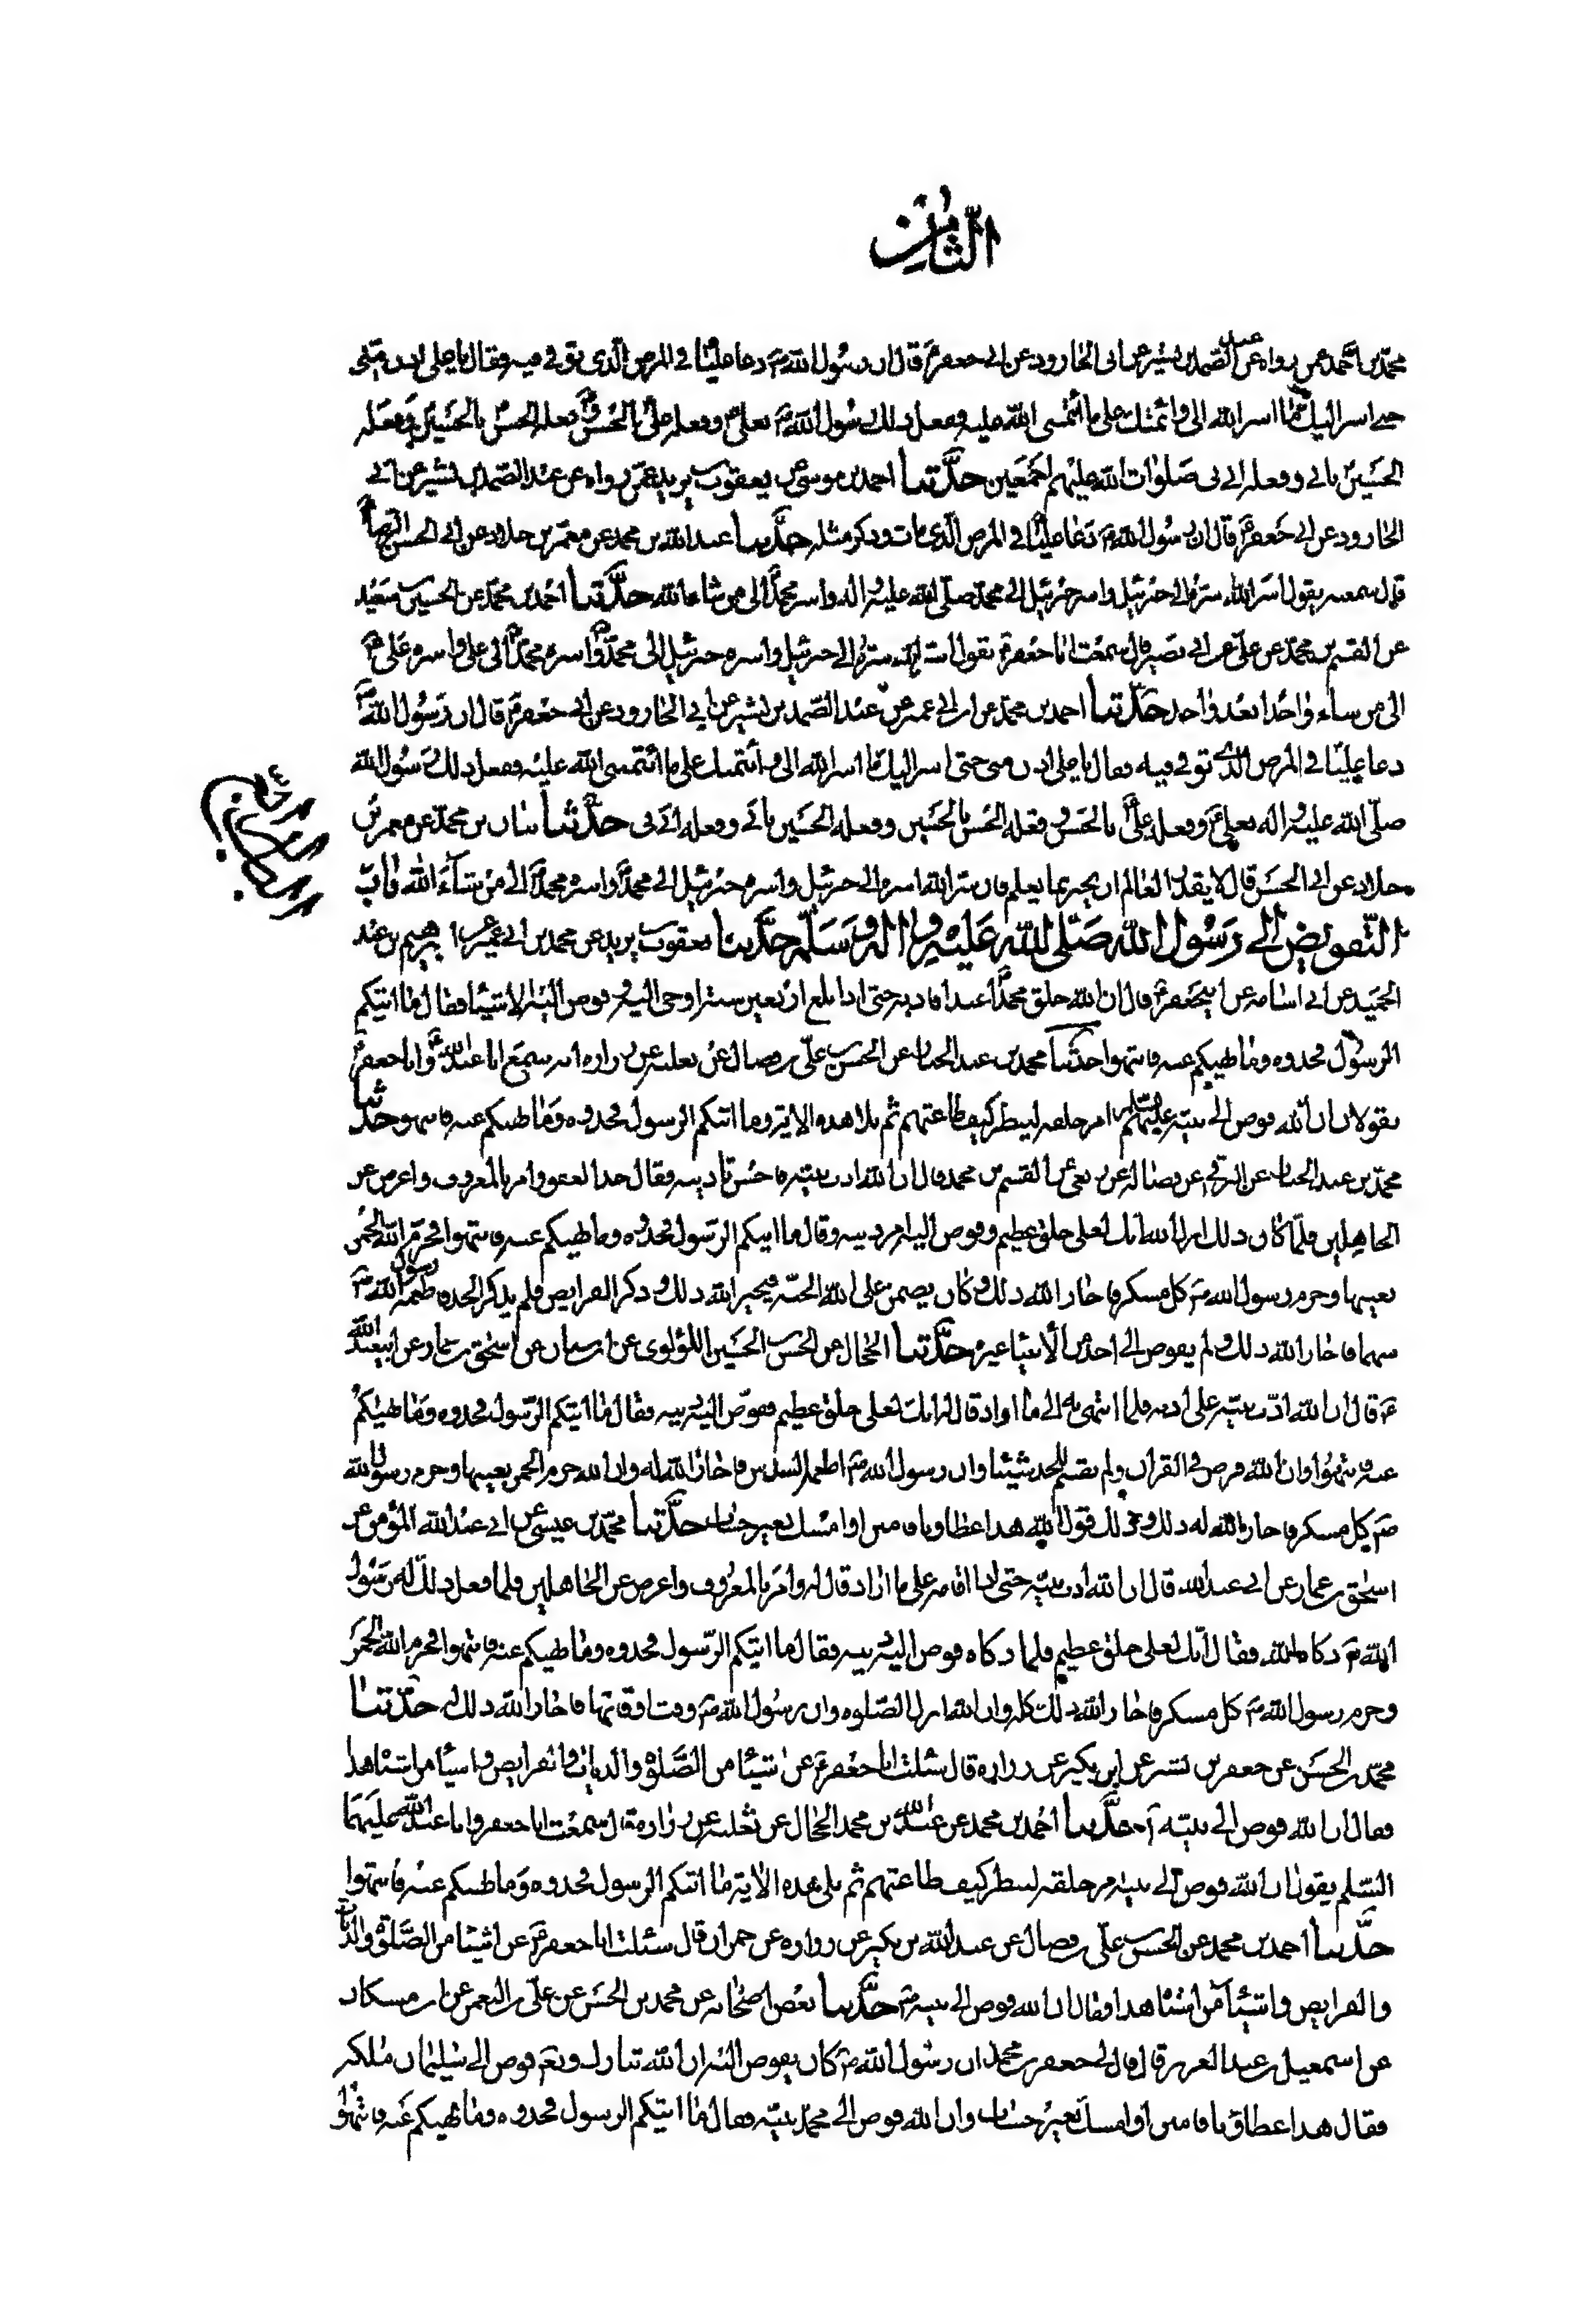 الثامن
محمد بن احمد عمن رواه عن عبد الصمد بن بشير عن ابى الجارود عن ابى جعفر ع قال ان رسول الله ص دعا عليا ع فى المرض الذى توفى فيه فقال يا على ادن منى
حتى اسر اليك ما اسر الله الى وائتمنك على ما ائتمننى الله عليه ففعل ذلك رسول الله ص بعلى ع وفعله على بالحسن ع وفعله الحسن بالحسين وفعله
الحسين بابى وفعله ابى بى صلوات الله عليهم اجمعين حدثنا احمد بن موسى عن يعقوب بن يزيد عمن رواه عن عبد الصمد بن بشير عن ابى
الجارود عن ابى جعفر ع قال ان رسول الله ص دعا عليا فى المرض الذى مات وذكر مثله حدثنا عبد الله بن محمد عن معمر بن خلاد عن ابى الحسن الرضا ع
قال سمعته يقول اسر الله سره الى جبرئيل واسره جبرئيل الى محمد صلى الله عليه واله واسره محمد الى من شاء الله حدثنا احمد بن محمد عن الحسين بن سعيد
عن القسم بن محمد عن على عن ابى بصير قال سمعت ابا جعفر ع يقول اسر الله سره الى جبرئيل واسره جبرئيل الى محمد ص واسره محمد الى على واسره على ع
الى من شاء واحدا بعد واحد حدثنا احمد بن محمد عن ابن ابى عمير عن عبد الصمد بن بشير عن ابى الجارود عن ابى جعفر ع قال ان رسول الله ص
دعا عليا فى المرض الذى توفى فيه فقال يا على ادن منى حتى اسر اليك ما اسر الله الى وائتمنك على ما ائتمننى الله عليه ففعل ذلك رسول الله
صلى الله عليه واله بعلى ع وفعله على ع بالحسن وفعله الحسن بالحسين وفعله الحسين بابى وفعله ابى بى حدثنا بنان بن محمد عن معمر بن
خلاد عن ابى الحسن قال لا يقدر العالم ان يخبر بما يعلم فان سر الله اسره الى جبرئيل واسره جبرئيل الى محمد ص واسره محمد ص الى من شاء الله باب
التفويض الى رسول الله صلى الله عليه واله وسلم حدثنا يعقوب بن يزيد عن محمد بن ابى عمير عن ابرهيم بن عبد
الحميد عن ابى اسامه عن ابيجعفر ع قال ان الله خلق محمدا عبدا فادبه حتى اذا بلغ اربعين سنة اوحى اليه وفوض اليه الاشياء فقال ما اتيكم
الرسول فخذوه وما نهيكم عنه فانتهوا حدثنا محمد بن عبد الجبار عن الحسن بن على بن فضال عن ثعلبه عن زراره انه سمع ابا عبد الله ع وابا جعفر ع
يقولان ان الله فوض الى نبيه عليه السلم امر خلقه لينظر كيف طاعتهم ثم تلا هذه الاية وما اتيكم الرسول فخذوه وما نهيكم عنه فانتهوا حدثنا
محمد بن عبد الجبار عن البرقى عن فضاله عن ربعى عن القسم بن محمد قال ان الله ادب نبيه فاحسن تاديبه فقال خذ العفو وامر بالمعروف واعرض عن
الجاهلين فلما كان ذلك انزل الله انك لعلى خلق عظيم وفوض اليه امر دينه وقال ما اتيكم الرسول فخذوه وما نهيكم عنه فانتهوا فحرم الله الخمر
بعينها وحرم رسول الله ص كل مسكر فاجاز الله ذلك وكان يضمن على الله الجنة فيجيز الله ذلك وذكر الفرايض فلم يذكر الجد فاطعمه رسول الله ص
سهما فاجاز الله ذلك ولم يفوض الى احد من الانبياء غيره حدثنا الحجال عن الحسن بن الحسين اللؤلؤى عن ابن سنان عن اسحق بن عمار عن ابيعبد الله
ع قال ان الله ادب نبيه على ادبه فلما انتهى به الى ما اراد قال له انك لعلى خلق عظيم ففوض اليه دينه فقال ما اتيكم الرسول فخذوه وما نهيكم
عنه فانتهوا وان الله فرض فى القران ولم يقسم للجد شيئا وان رسول الله ص اطعمه السدس فاجاز الله له وان الله حرم الخمر بعينها وحرم رسول الله
ص كل مسكر فاجاز الله له ذلك وذلك قول الله هذا عطاؤنا فامنن او امسك بغير حساب حدثنا محمد بن عيسى عن ابى عبد الله المؤمن عن
اسحق بن عمار عن ابى عبد الله قال ان الله ادب نبيه حتى اذا اقامه على ما اراد قال له وامر بالمعروف واعرض عن الجاهلين فلما فعل ذلك له رسول
الله ص زكاه الله فقال انك لعلى خلق عظيم فلما زكاه فوض اليه دينه فقال ما اتيكم الرسول فخذوه وما نهيكم عنه فانتهوا فحرم الله الخمر
وحرم رسول الله ص كل مسكر فاجاز الله ذلك كله وان الله انزل الصلوه وان رسول الله ص وقت اوقاتها فاجاز الله ذلك له حدثنا
محمد بن الحسن عن جعفر بن بشير عن ابن بكير عن زراره قال سئلت ابا جعفر ع عن اشيئا من الصلوة والديات والفرايض واشيئا من اشباه هذا
فقال ان الله فوض الى نبيه ص حدثنا احمد بن محمد عن عبد الله بن محمد الحجال عن ثعلبه عن زراره قال سمعت ابا جعفر وابا عبد الله عليهما
السلم يقولان ان الله فوض الى نبيه امر خلقه لينظر كيف طاعتهم ثم تلى هذه الاية ما اتيكم الرسول فخذوه وما نهيكم عنه فانتهوا
حدثنا احمد بن محمد عن الحسن بن على بن فضال عن عبد الله بن بكير عن زراره عن حمران قال سئلت ابا جعفر ع عن اشيئا من الصلوة والديات
والفرايض واشيئا من اشباه هذا فقال ان الله فوض الى نبيه ص حدثنا بعض اصحابه عن محمد بن الحسن عن على بن النعمن عن ابن مسكان
عن اسمعيل بن عبد العزيز قال قال لى جعفر بن محمد ان رسول الله ص كان يفوض اليه ان الله تبارك وتعم فوض الى سليمان ملكه
فقال هذا عطاؤنا فامنن او امسك بغير حساب وان الله فوض الى محمد نبيه فقال ما اتيكم الرسول فخذوه وما نهيكم عنه فانتهوا